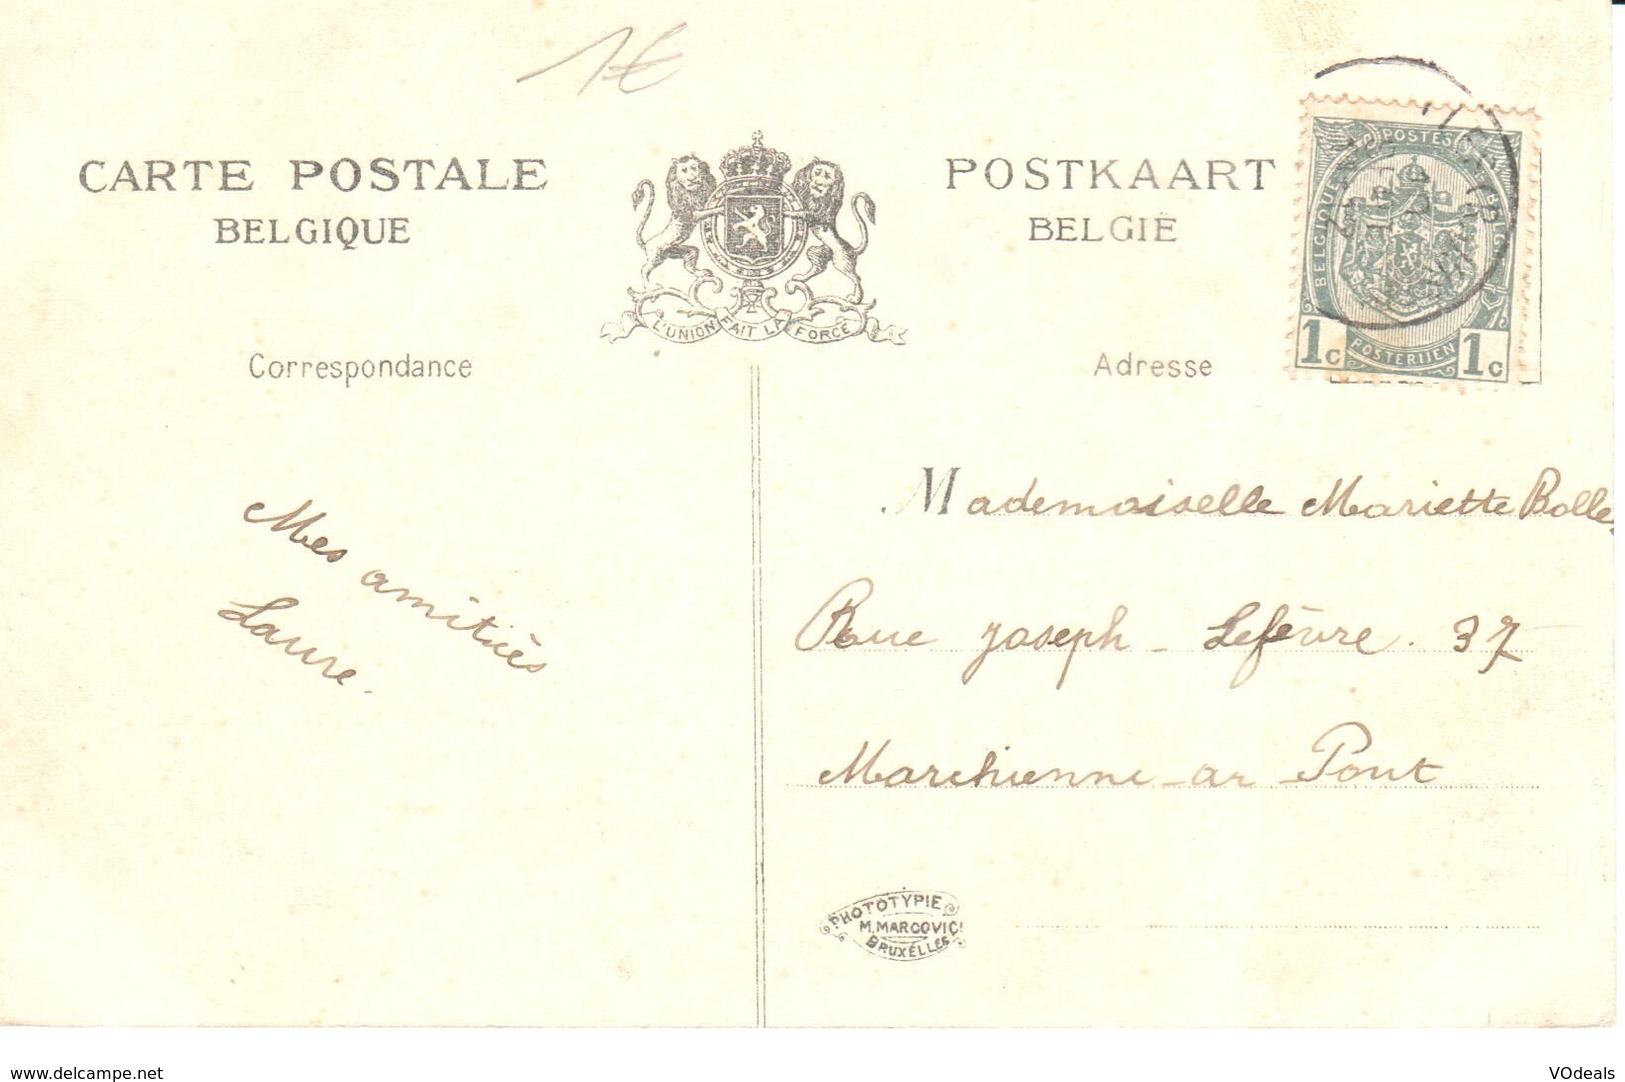 1€
CARTE POSTALE
BELGIQUE
POSTKAART
BELGIË
L'UNION FAIT LA FORCE
POSTES
BELGIQUE
BELGIË
1c POSTERIJEN 1c
Correspondance
Adresse
Mes amitiés
Laure.
Mademoiselle Mariette Bolle
Rue Joseph - Lefèvre. 37
Marchienne-ar Pont
PHOTOTYPIE
M. MARCOVICI
BRUXELLES
www.delcampe.net
VOdeals